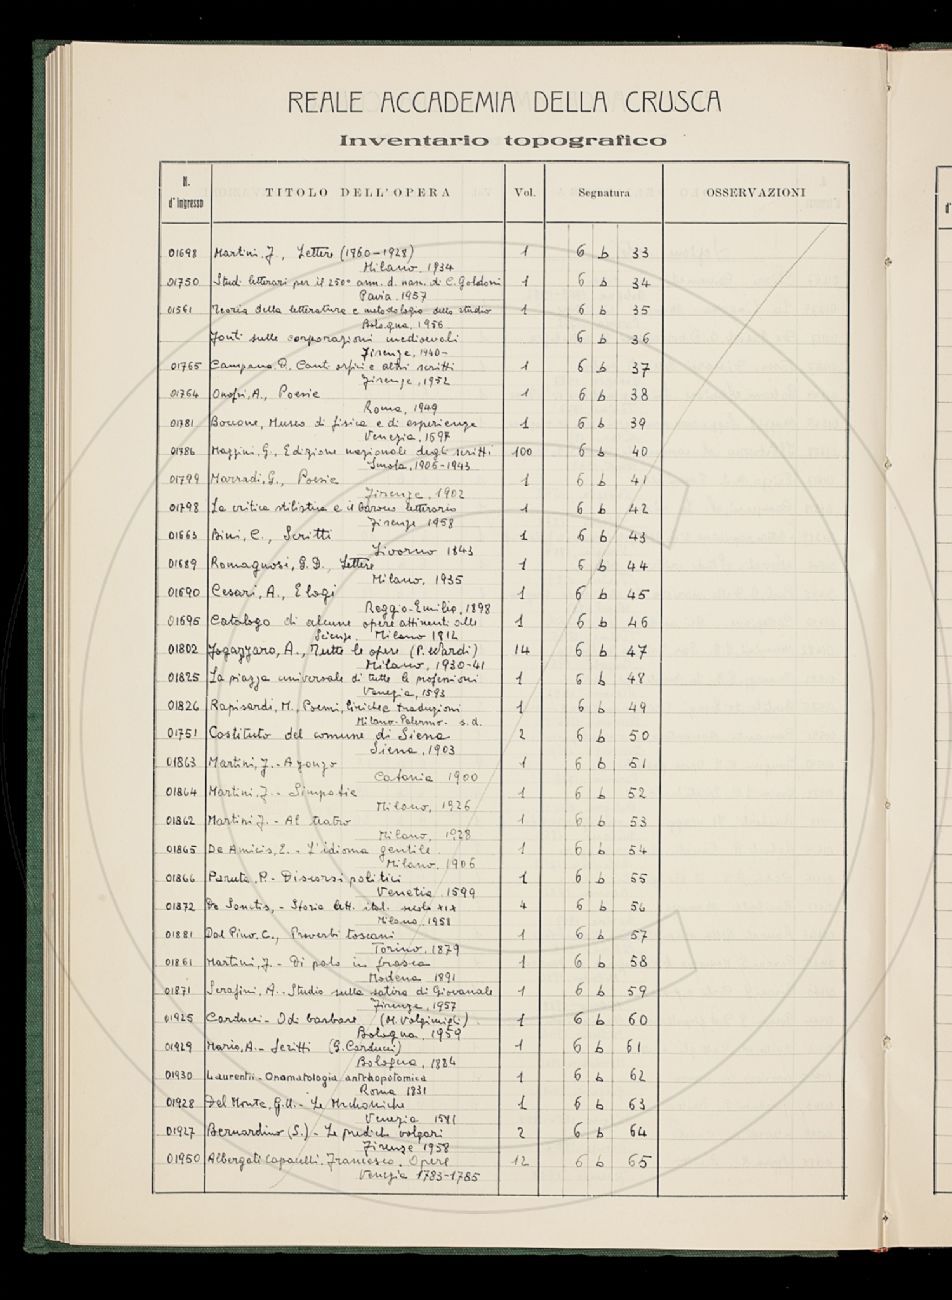 REALE ACCADEMIA DELLA CRUSCA
Inventario topografico
N. d'Ingresso TITOLO DELL'OPERA Vol. Segnatura OSSERVAZIONI
01698 Martini, J., Lettere (1960-1928) 1 6 b 33
Milano, 1934
01750 Studi letterari per il 250° ann. d. nas. di C. Goldoni 1 6 b 34
Pavia, 1957
01561 Teoria della letteratura e metodologia dello studio 1 6 b 35
Bologna, 1956
Fonti sulle corporazioni medioevali 6 b 36
Firenze, 1940-
01765 Campana, D. Canti orfici e altri scritti 1 6 b 37
Firenze, 1952
01764 Onofri, A., Poesie 1 6 b 38
Roma, 1949
01781 Boccone, Museo di fisica e di esperienze 1 6 b 39
Venezia, 1697
01786 Mazzini, G., Edizione nazionale degli scritti 100 6 b 40
Imola, 1906-1943
01799 Marradi, G., Poesie 1 6 b 41
Firenze, 1902
01798 La critica stilistica e il barocco letterario 1 6 b 42
Firenze 1958
01663 Bini, C., Scritti 1 6 b 43
Livorno 1843
01689 Romagnosi, G. D., Lettere 1 6 b 44
Milano, 1935
01690 Cesari, A., Elogi 1 6 b 45
Reggio-Emilia, 1898
01695 Catalogo di alcune opere attinenti alle 1 6 b 46
Scienze. Milano 1812
01802 Fogazzaro, A., Tutte le opere (P. Nardi) 14 6 b 47
Milano, 1930-41
01825 La piazza universale di tutte le professioni 1 6 b 48
Venezia, 1593
01826 Rapisardi, M., Poemi, liriche e traduzioni 1 6 b 49
Milano-Palermo- s.d.
01751 Costituto del comune di Siena 2 6 b 50
Siena, 1903
01863 Martini, J. - A zonzo 1 6 b 51
Catania 1900
01864 Martini, J. - Simpatie 1 6 b 52
Milano, 1926
01862 Martini J. - Al teatro 1 6 b 53
Milano, 1928
01865 De Amicis, E. - L'idioma gentile. 1 6 b 54
Milano, 1906
01866 Paruta, P. - Discorsi politici 1 6 b 55
Venetia, 1599
01872 De Sanctis, - Storia lett. ital. secolo XIX 4 6 b 56
Milano, 1958
01881 Dal Pino, C., Proverbi toscani 1 6 b 57
Torino, 1879
01861 Martini, J. - Di palo in frasca 1 6 b 58
Modena 1891
01871 Serafini, A. - Studio sulla satira di Giovenale 1 6 b 59
Firenze, 1957
01925 Carducci - Odi barbare (M. Valgimigli) 1 6 b 60
Bologna, 1959
01929 Mario, A. - Scritti (G. Carducci) 1 6 b 61
Bologna, 1884
01930 Laurentii - Onamatologia anthropotomica 1 6 b 62
Roma 1631
01928 Del Monte, G. U. - Le Mechaniche 1 6 b 63
Venezia 1581
01927 Bernardino (S.) - Le prediche volgari 2 6 b 64
Firenze 1958
01950 Albergati Capacelli, Francesco. Opere 12 6 b 65
Venezia 1783-1785